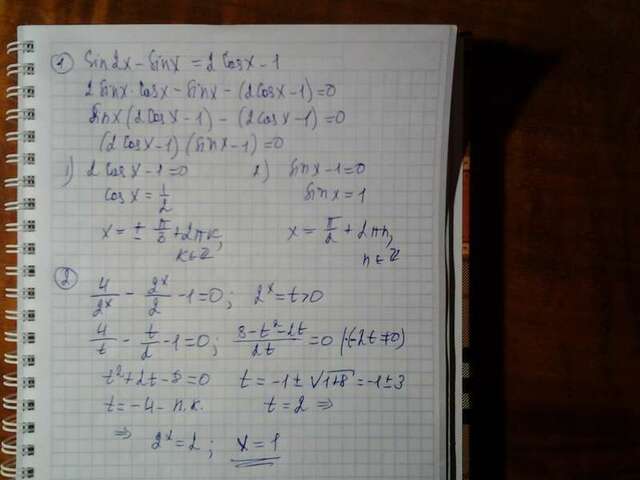 1 Sin2x - Sinx = 2Cosx - 1
2Sinx·Cosx - Sinx - (2Cosx - 1) = 0
Sinx(2Cosx - 1) - (2Cosx - 1) = 0
(2Cosx - 1)(Sinx - 1) = 0
1) 2Cosx - 1 = 0 2) Sinx - 1 = 0
Cosx = 1/2 Sinx = 1
x = ± π/3 + 2πk, k∈Z x = π/2 + 2πn, n∈Z
2 4/2^x - 2^x/2 - 1 = 0; 2^x = t > 0
4/t - t/2 - 1 = 0; (8 - t² - 2t)/2t = 0 (2t ≠ 0)
t² + 2t - 8 = 0 t = -1 ± √(1+8) = -1 ± 3
t = -4 - п.к. t = 2 ⇒
⇒ 2^x = 2; x = 1